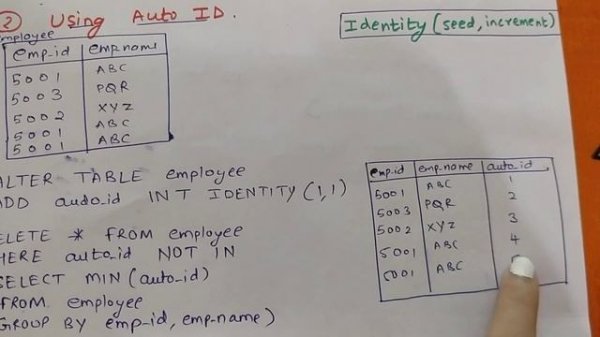 ② Using Auto ID.
Identity (seed, increment)
employee
emp-id emp-name
5001 ABC
5003 PQR
5002 XYZ
5001 ABC
5001 ABC
ALTER TABLE employee
ADD audo_id INT IDENTITY (1,1)
ELETE * FROM employee
HERE auto_id NOT IN
SELECT MIN (auto_id)
FROM employee
GROUP BY emp-id, emp-name)
emp-id emp-name auto-id
5001 ABC 1
5003 PQR 2
5002 XYZ 3
5001 ABC 4
5001 ABC